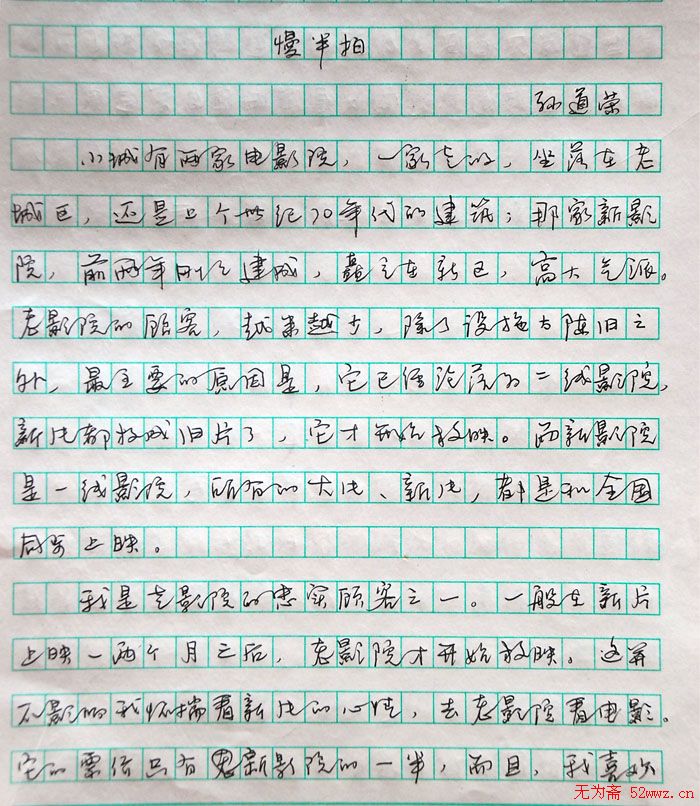 慢半拍
孙道荣
小城有两家电影院，一家老的，坐落在老
城区，还是上个世纪70年代的建筑；那家新影
院，前两年刚刚建成，矗立在新区，高大气派。
老影院的顾客，越来越少，除了设施太陈旧之
外，最主要的原因是，它已经沦落为二线影院，
新片都放成旧片了，它才开始放映。而新影院
是一线影院，所有的大片、新片，都是和全国
同步上映。
我是老影院的忠实顾客之一。一般在新片
上映一两个月之后，老影院才开始放映。这并
不影响我怀揣看新片的心情，去老影院看电影。
它的票价只有新影院的一半，而且，我喜欢
无为斋 52wwz.cn